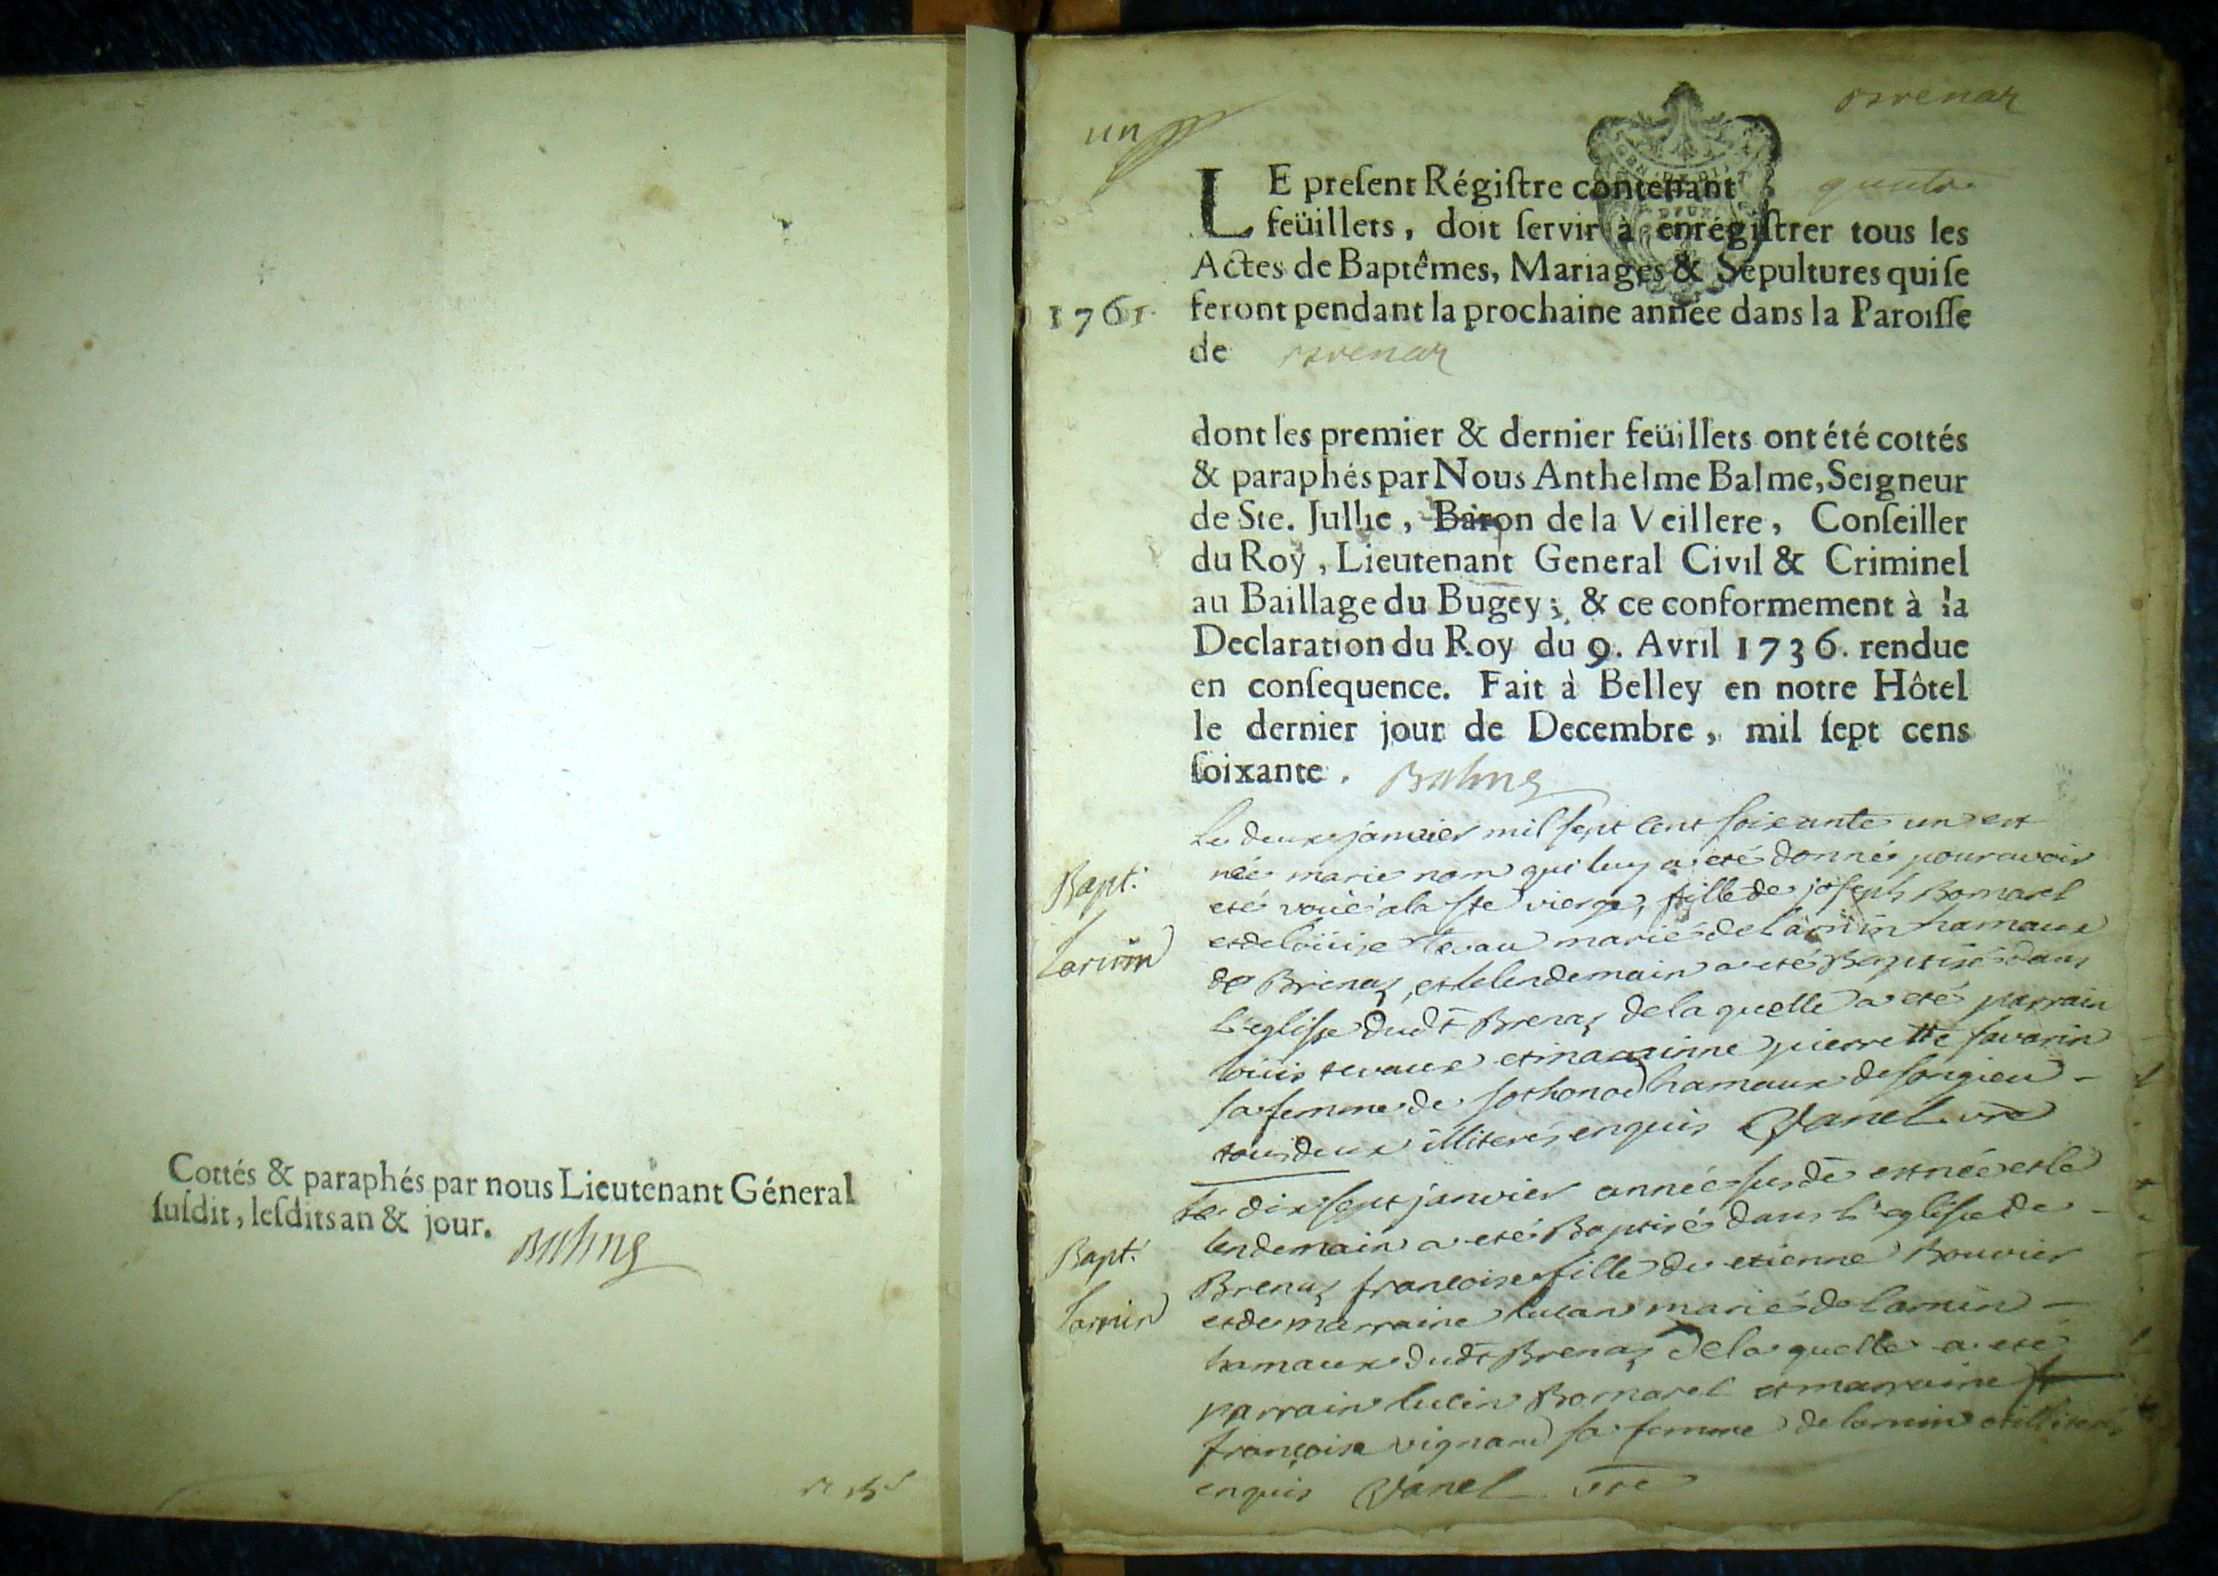 Cottés & paraphés par nous Lieutenant Géneral
susdit, lesdits an & jour. Balme
un
Brenaz
LE present Régistre contenant quatre
feüillets, doit servir à enrégistrer tous les
Actes de Baptêmes, Mariages & Sepultures qui se
1761. feront pendant la prochaine année dans la Paroisse
de Brenaz
dont les premier & dernier feüillets ont été cottés
& paraphés par Nous Anthelme Balme, Seigneur
de Ste. Jullie, Baron de la Veillere, Conseiller
du Roy, Lieutenant General Civil & Criminel
au Baillage du Bugey; & ce conformement à la
Declaration du Roy du 9. Avril 1736. rendue
en consequence. Fait à Belley en notre Hôtel
le dernier jour de Decembre, mil sept cens
soixante. Balme
Le deux janvier mil sept cent soixante un est
Bapt.
née marie nom qui luy a eté donné pour avoir
eté voüé a la ste vierge, fille de joseph Bornarel
et de loüise tevau mariés de lamin hamaux
de Brenaz, et le lendemain a eté Baptisé dans
l'eglise dudt Brenaz de la quelle a eté parrain
loüis tevaux et marainne pierrette favarin
sa femme de sothonod hamaux de songieu
tous deux illiterés enquis Vanel vre
Le dix sept janvier année susde est née et le
Bapt.
lendemain a eté Baptisé dans l'eglise de
Brenaz francoise fille de etienne Bouvier
Lamin
et de marraine lucan mariés de lamin
hamaux dudt Brenaz de la quelle a eté
parrain lucin Bornarel et marraine
françoise vignard sa femme de lamin illiterés
enquis Vanel vre